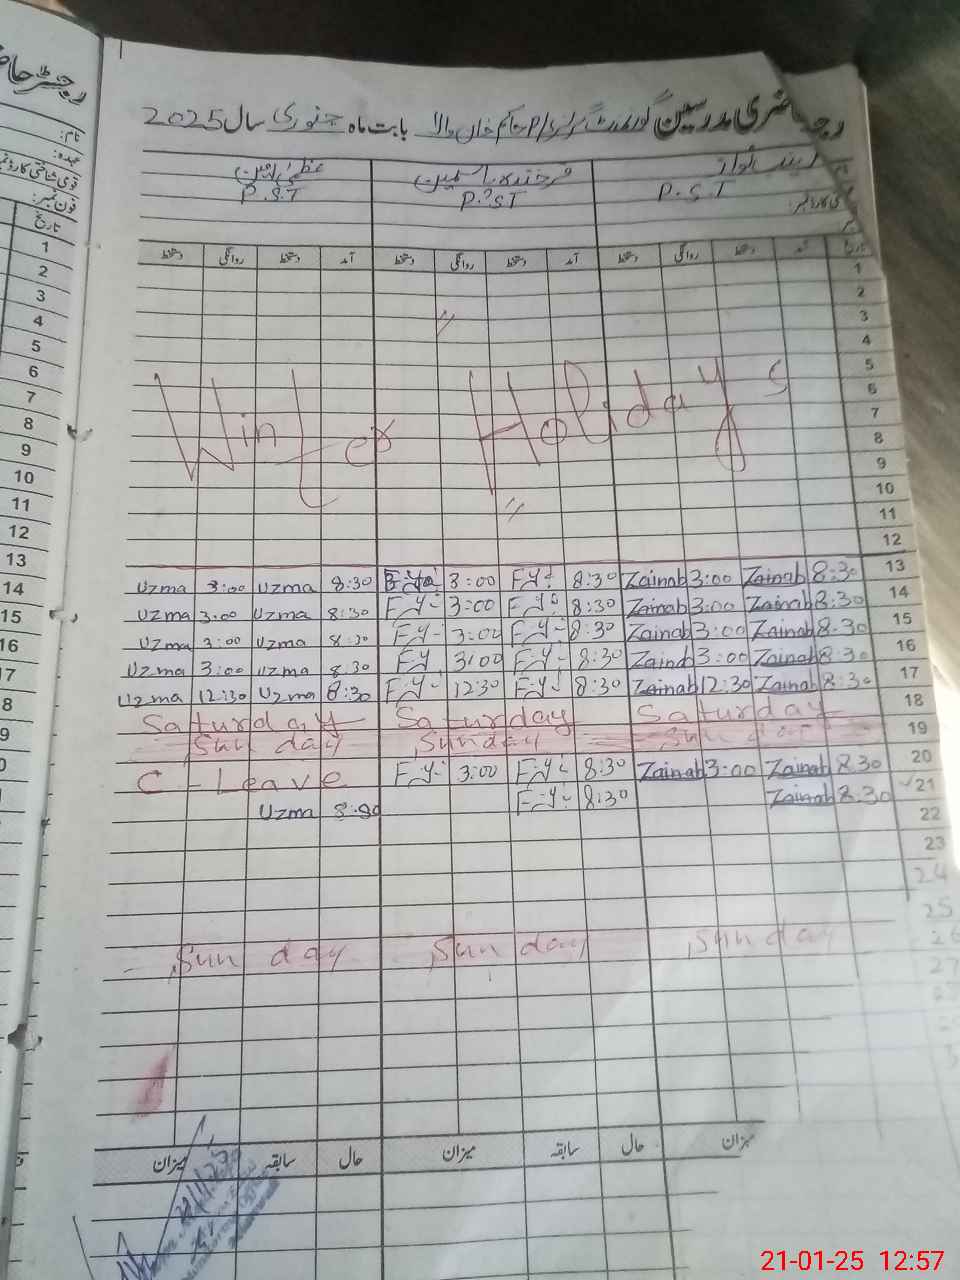 رجسٹر حاضری مدرسین گورنمنٹ گرلز پرائمری حاکم خان والا بابت ماہ جنوری سال 2025
عظمیٰ یاسمین فرخندہ یاسمین زینب نواز
P.S.T P.S.T P.S.T
دستخط روانگی دستخط آمد دستخط روانگی دستخط آمد دستخط روانگی دستخط آمد تاریخ
1
2
3
4
5
Winter Holidays 6
7
8
9
10
11
12
Uzma 3:00 Uzma 8:30 3:00 F.Y 8:30 Zainab 3:00 Zainab 8:30 13
Uzma 3:00 Uzma 8:30 F.Y 3:00 F.Y 8:30 Zainab 3:00 Zainab 8:30 14
Uzma 3:00 Uzma 8:30 F.Y 3:00 F.Y 8:30 Zainab 3:00 Zainab 8:30 15
Uzma 3:00 Uzma 8:30 F.Y 3:00 F.Y 8:30 Zainab 3:00 Zainab 8:30 16
Uzma 12:30 Uzma 8:30 F.Y 12:30 F.Y 8:30 Zainab 12:30 Zainab 8:30 17
Saturday Saturday Saturday 18
Sunday Sunday Sunday 19
C - Leave F.Y 3:00 F.Y 8:30 Zainab 3:00 Zainab 8:30 20
Uzma 8:30 F.Y 8:30 Zainab 8:30 21
22
23
24
25
Sunday Sunday Sunday 26
27
میزان سابقہ حال میزان سابقہ حال میزان
رجسٹر
نام:
عہدہ:
قومی شناختی کارڈ نمبر
فون نمبر:
تاریخ
1
2
3
4
5
6
7
8
9
10
11
12
13
14
15
16
21-01-25 12:57